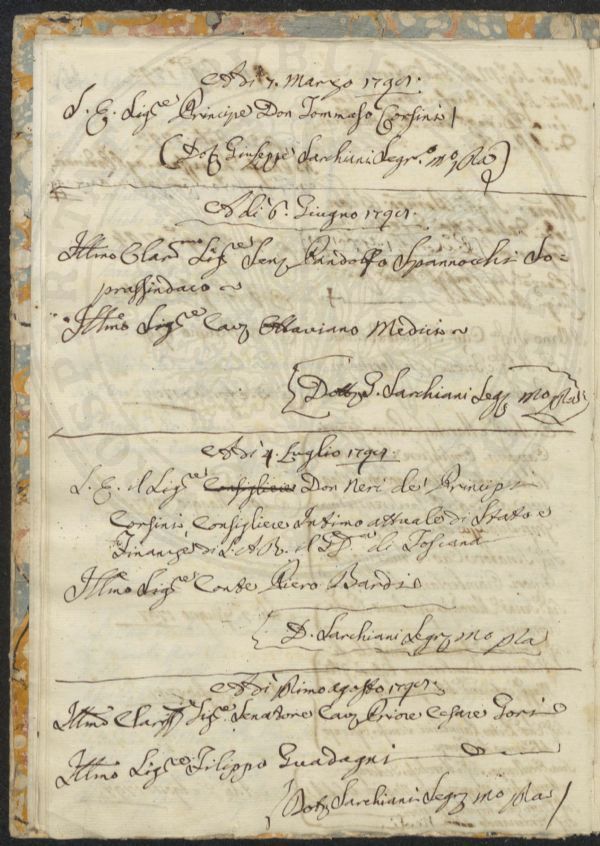 Adì 7. Marzo 1791.
S. E. Sig.re Principe Don Tommaso Corsini
(Dott. Giuseppe Sarchiani Segr.o mo pa)
Adì 6. Giugno 1791.
Illmo Clar.mo Sig.re Sen. Pandolfo Spannocchi So=
prassindaco
Illmo Sig.re Cav. Ottaviano Medici
Dott. G. Sarchiani Seg. mo pa
Adì 4. Luglio 1791.
S. E. il Sig.re Consigliere Don Neri de' Principi
Corsini Consigliere Intimo attuale di Stato e
Finanze di S. A. R. il G. D. di Toscana
Illmo Sig.re Conte Piero Bardi
D. Sarchiani Segr. mo pa
Adì Primo agosto 1791.
Illmo Clar. Sig.re Senatore Cav. Priore Cesare Gori
Illmo Sig.re Filippo Guadagni
Dott. Sarchiani Segr. mo pa